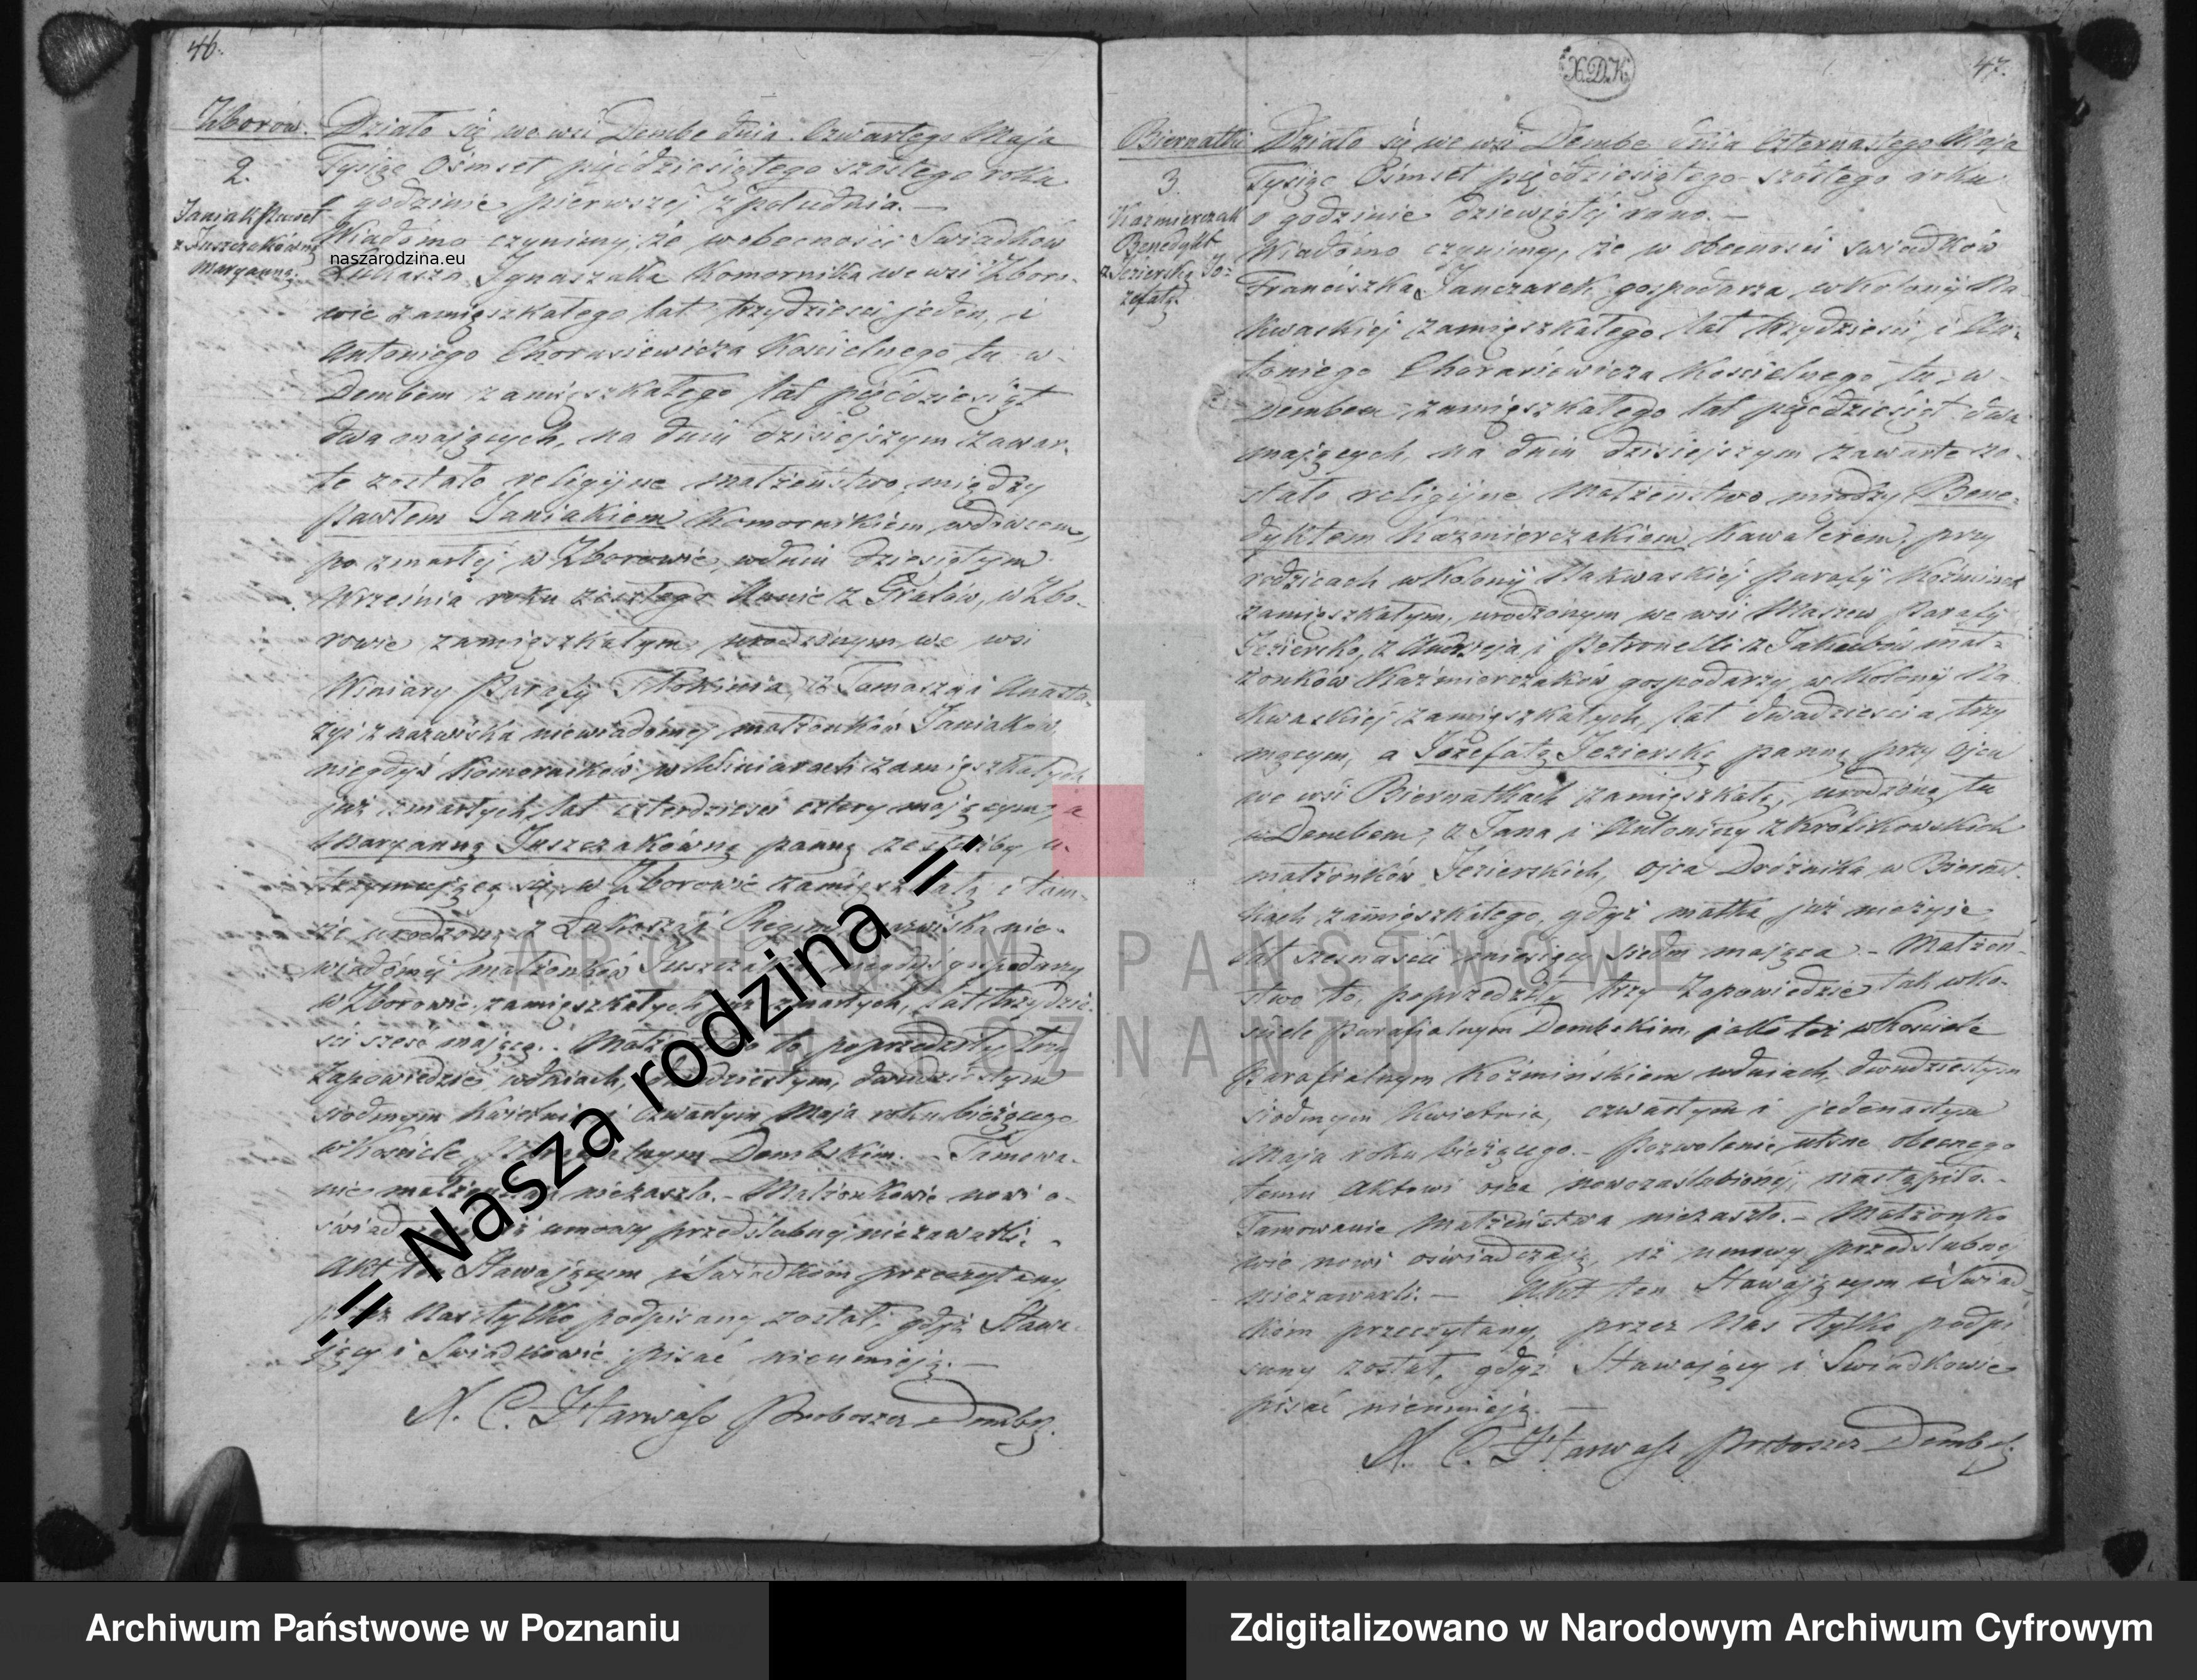 46.
Zborów.
2.
Janiak Paweł
z Juszczakówną
Maryanną.
Działo się we wsi Dembe dnia Czwartego Maja
Tysiąc Ośmset pięćdziesiątego szóstego roku
o godzinie pierwszej z południa. —
Wiadomo czynimy, że w obecności Swiadków
naszarodzina.eu
Łukasza Ignaszaka Komornika we wsi Zboro-
wie zamięszkałego lat trzydzieści jeden, i
Antoniego Chorasiewicza Kościelnego tu w
Dembem zamięszkałego lat pięćdziesiąt
dwa mających, na dniu dzisiejszym zawar-
te zostało religijne małżeństwo między
Pawłem Janiakiem Komornikiem, wdowcem,
po zmarłej w Zborowie, w dniu dziesiątym
Września roku zeszłego Annie z Grałów, w Zbo-
rowie zamięszkałym, urodzonym we wsi
Winiary Parafij Tłokinia, z Tomasza i Anasta-
zyi z nazwiska niewiadomej małżonków Janiaków
niegdyś Komorników w Winiarach zamięszkałych
już zmarłych, lat czterdzieści cztery mającym, a
Maryanną Juszczakówną panną ze służby u-
trzymującą się, w Zborowie zamięszkałą i tam-
że urodzoną z Łukasza i Reginy nazwiska nie-
wiadomej małżonków Juszczaków niegdyś gospodarzy
w Zborowie zamięszkałych już zmarłych, lat trzydzie-
ści sześć mającą. Małżeństwo to poprzedziły trzy
Zapowiedzie w dniach, dwudziestym, dwudziestym
siódmym Kwietnia i czwartym Maja roku bieżącego
w Kościele Parafialnym Dembskim. - Tamowa-
nie małżeństwa niezaszło. - Małżonkowie nowi o-
świadczają iż umowy przedślubnej niezawarli. -
Akt ten Stawającym i Swiadkom przeczytany,
przez Nas tylko podpisany został, gdyż Stawa-
jący i Swiadkowie pisać nieumieją. —
X. C. Harwasz Proboszcz Dembs.
X.D.K.
47.
Biernatki
3.
Kaźmierczak
Benedykt
z Jezierską Jó-
zefatą.
Działo się we wsi Dembe dnia Czternastego Maja
Tysiąc Ośmset pięćdziesiątego szóstego roku
o godzinie dziewiątej rano. —
Wiadomo czynimy, że w obecności swiadków
Franciszka Janczarek gospodarza w Kolonij Na
Kwaskiej zamięszkałego lat trzydzieści i An-
toniego Chorasiewicza Kościelnego tu w
Dembem zamięszkałego lat pięćdziesiąt dwa
mających, na dniu dzisiejszym zawarte zo-
stało religijne Małżeństwo między Bene-
dyktem Kaźmierczakiem Kawalerem, przy
rodzicach w Kolonij Nakwaskiej Parafij Koźminek
zamięszkałym, urodzonym we wsi Maszew Parafij
Jeziersko, z Andrzeja i Petronelli z Jakubów mał-
żonków Kaźmierczaków gospodarzy w Kolonij Na
Kwaskiej zamięszkałych, lat dwadzieścia trzy
mącym, a Józefatą Jezierską panną przy ojcu
we wsi Biernatkach zamięszkałą, urodzoną tu
w Dembem, z Jana i Antoniny z Królikowskich
małżonków Jezierskich, ojca Dróżnika w Biernat-
kach zamięszkałego, gdyż matka już nieżyje
lat szesnaście miesięcy siedm mająca. - Małżeń-
stwo to, poprzedziły trzy Zapowiedzie tak w Ko-
ściele Parafialnym Dembskim, jako też w Kościele
Parafialnym Koźmińskiem w dniach, dwudziestym
siódmym Kwietnia, czwartym i jedenastym
Maja roku bieżącego. - Pozwolenie ustne obecnego
temu Aktowi ojca nowozaślubionej, nastąpiło. -
Tamowanie Małżeństwa niezaszło. - Małżonko
wie nowi oświadczają, iż umowy przedślubnej
niezawarli. — Akt ten Stawającym i Swiad-
kom przeczytany, przez Nas tylko podpi
sany został, gdyż Stawający i Swiadkowie
pisać nieumieją. —
X. C. Harwasz Proboszcz Dembs.
.:= Nasza rodzina =:.
ARCHIWUM PAŃSTWOWE
W POZNANIU
Archiwum Państwowe w Poznaniu
Zdigitalizowano w Narodowym Archiwum Cyfrowym